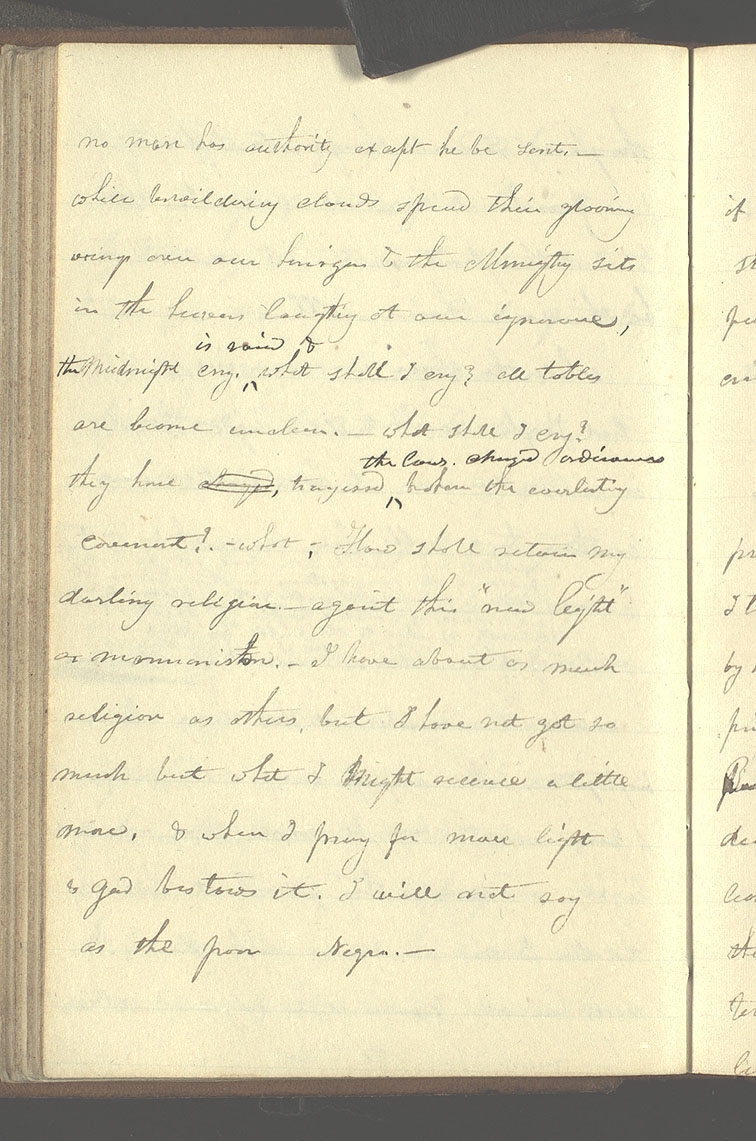 no man has authority except he be sent. —
while bewildering clouds spread their glooming
wings over our horizon & the Almighty sits
in the heavens laughing at our ignorance,
is raised &
the Midnight cry. ^ what shall I cry? all tables
are become unclean. — what shall I cry?
the laws. changed ordinances
they have changed, ^ broken the everlasting
covenant?. — what; How shall retain my
darling religion — against this "new light"
or mormonism. — I have about as much
religion as others, but I have not got so
much but what I might receive a little
more, & when I pray for more light
& god bestows it. I will not say
as the poor Negro. —
of
by